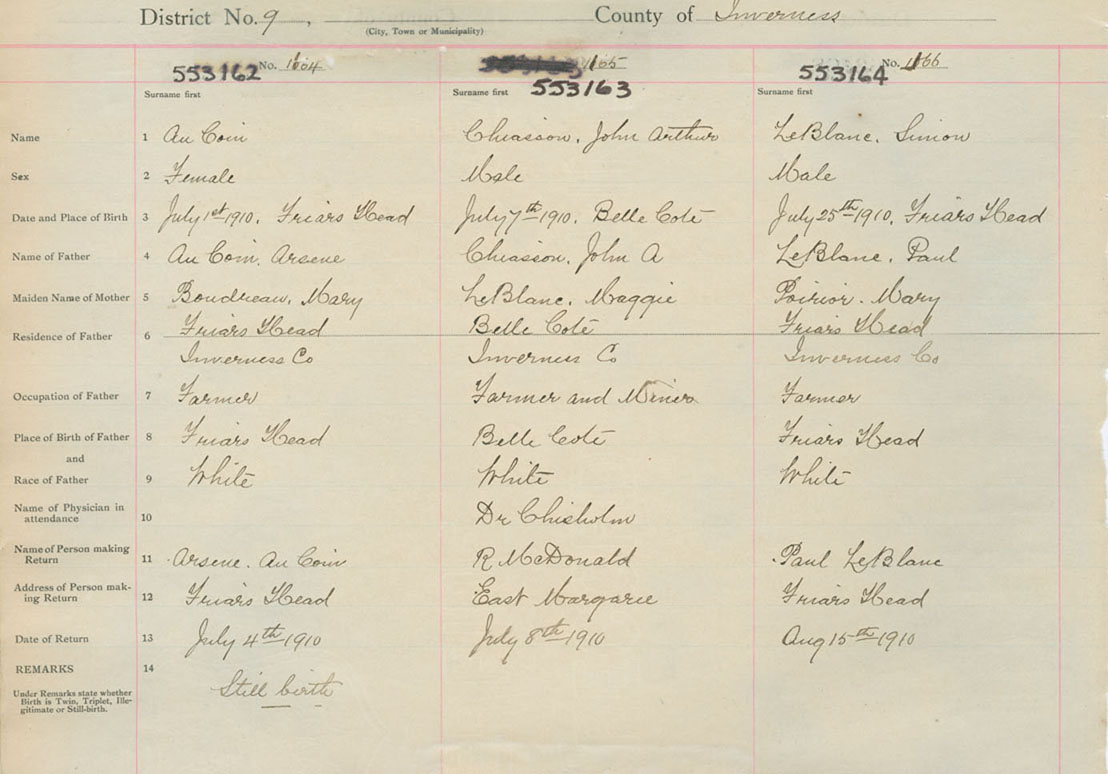 District No. 9, County of Inverness
(City, Town or Municipality)
553162 No. 1664 1665 553164 No. 1666
Surname first Surname first 553163 Surname first
Name 1 Au Coin Chiasson, John Arthur LeBlanc, Simion
Sex 2 Female Male Male
Date and Place of Birth 3 July 1st 1910, Friars Head July 7th 1910, Belle Coté July 25th 1910, Friars Head
Name of Father 4 Au Coin, Arsene Chiasson, John A LeBlanc, Paul
Maiden Name of Mother 5 Boudreau, Mary LeBlanc, Maggie Poirior, Mary
Residence of Father 6 Friars Head Belle Coté Friars Head
Inverness Co Inverness Co Inverness Co
Occupation of Father 7 Farmer Farmer and Miner Farmer
Place of Birth of Father 8 Friars Head Belle Coté Friars Head
and
Race of Father 9 White White White
Name of Physician in
attendance 10 Dr Chisholm
Name of Person making
Return 11 Arsene Au Coin R McDonald Paul LeBlanc
Address of Person mak-
ing Return 12 Friars Head East Margaree Friars Head
Date of Return 13 July 4th 1910 July 8th 1910 Aug 15th 1910
REMARKS 14
Under Remarks state whether
Birth is Twin, Triplet, Ille-
gitimate or Still-birth.
Still birth